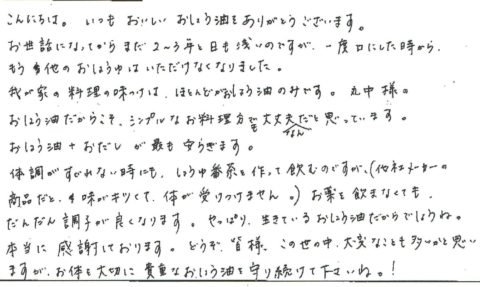 こんにちは。いつもおいしいおしょう油をありがとうございます。
お世話になってからまだ2〜3年と日も浅いのですが、一度口にした時から、
もう他のおしょうゆはいただけなくなりました。
我が家の料理の味つけは、ほとんどがおしょう油のみです。丸中様の
おしょう油だからこそ、シンプルなお料理方でも大丈夫なんだと思っています。
おしょう油+おだしが最も安らぎます。
体調がすぐれない時にも、しょうゆ番茶を作って飲むのですが、(他社メーカーの
商品だと、味がキツくて、体が受けつけません。)お薬を飲まなくても、
だんだん調子が良くなります。やっぱり、生きているおしょう油だからでしょうね。
本当に感謝しております。どうぞ、皆様、この世の中、大変なことも多いかと思い
ますが、お体を大切に貴重なおしょう油を守り続けて下さいね。!